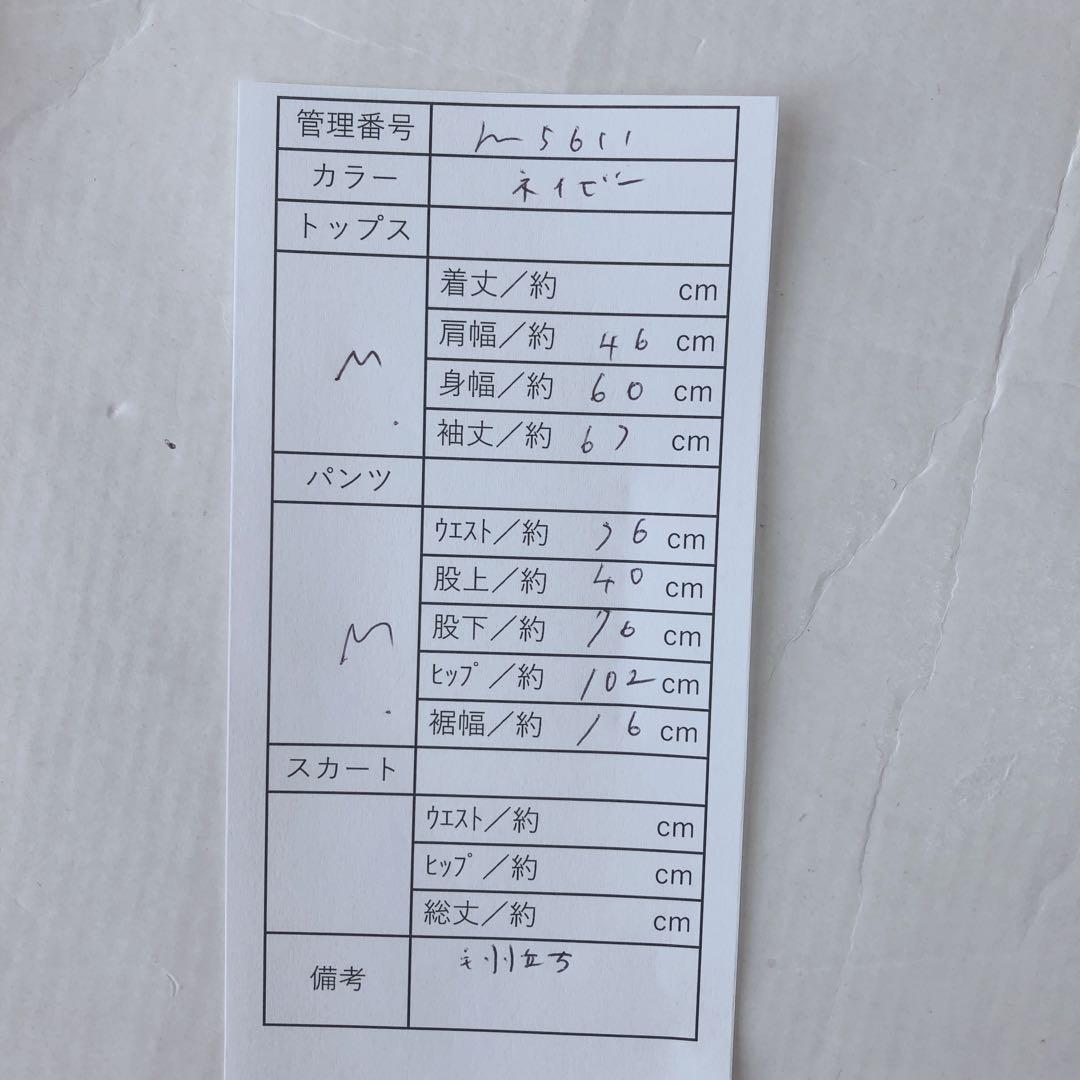 管理番号 m5611
カラー ネイビー
トップス
M.
着丈／約 cm
肩幅／約 46 cm
身幅／約 60 cm
袖丈／約 67 cm
パンツ
M.
ｳｴｽﾄ／約 76 cm
股上／約 40 cm
股下／約 76 cm
ﾋｯﾌﾟ／約 102 cm
裾幅／約 16 cm
スカート
ｳｴｽﾄ／約 cm
ﾋｯﾌﾟ／約 cm
総丈／約 cm
備考 毛羽立ち